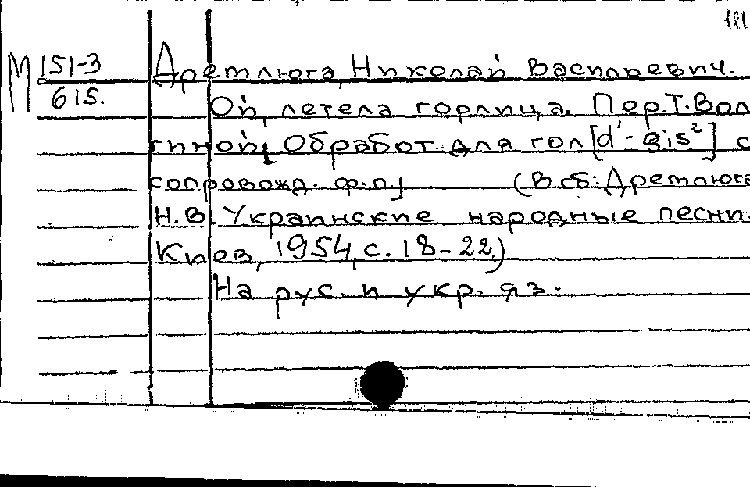 М 151-3
615.
Дремлюга, Николай Васильевич.
Ой, летела горлица. Пер. Т. Вол
гиной, Обработ. для гол [d¹-gis²] с
сопровожд. ф.п.] (В сб: Дремлюга
Н.В. Украинские народные песни.
Киев, 1954, с. 18-22)
На рус. и укр. яз.